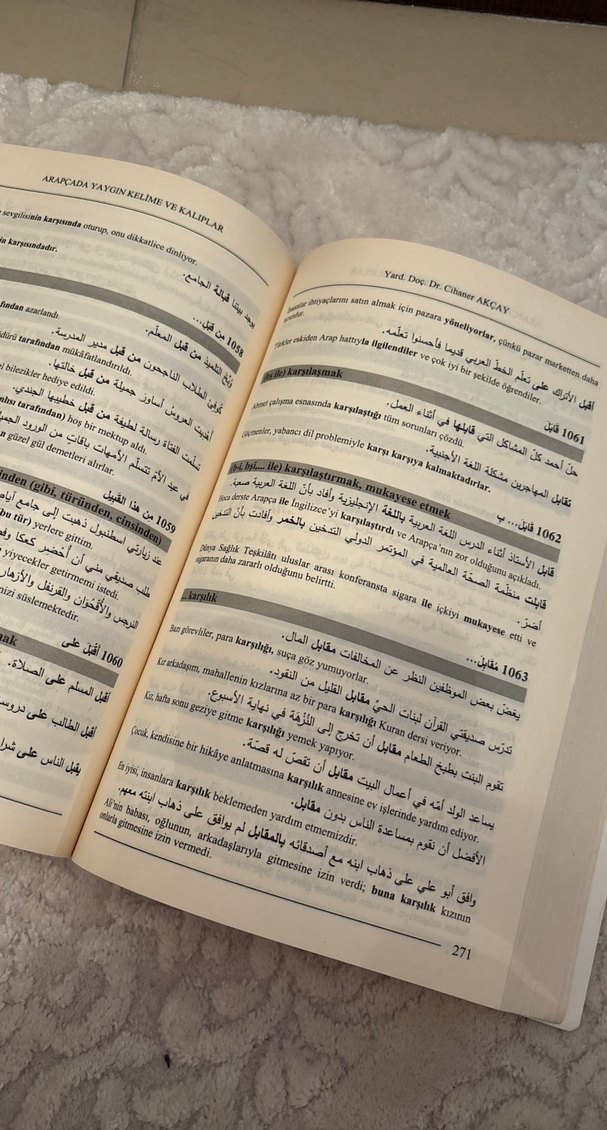 ARAPÇADA YAYGIN KELİME VE KALIPLAR
sevgilisinin karşısında oturup, onu dikkatlice dinliyor.
in karşısındadır.
يوجد بيتنا قبالة الجامع.
1058 من قبل...
afından azarlandı.
وُبِّخ التلميذ من قبل المعلّم.
dürü tarafından mükâfatlandırıldı.
كوفئ الطلاب الناجحون من قبل مدير المدرسة.
el bilezikler hediye edildi.
أهديت العروس أساور جميلة من قبل خالتها.
nlısı tarafından) hoş bir mektup aldı.
سلّمت الفتاة رسالة لطيفة من قبل خطيبها الجندي.
n güzel gül demetleri alırlar.
في عيد الأم تتسلّم الأمهات باقات من الورود الجميلة
1059 من هذا القبيل
inden (gibi, türünden, cinsinden)
عند زيارتي اسطنبول ذهبت إلى جامع أيا
bu tür) yerlere gittim.
طلب صديقي مني أن أحضر كعكا
yiyecekler getirmemi istedi.
النرجس والأقحوان والقرنفل والأزهار
nizi süslemektedir.
1060 أقبل على
mak
أقبل المسلم على الصلاة.
أقبل الطالب على
يقبل الناس على
Yard. Doç. Dr. Cihaner AKÇAY
İnsanlar ihtiyaçlarını satın almak için pazara yöneliyorlar, çünkü pazar marketten daha
ucuzdur.
أقبل الأتراك على تعلّم الخطّ العربي قديما فأحسنوا تعلّمه.
Türkler eskiden Arap hattıyla ilgilendiler ve çok iyi bir şekilde öğrendiler.
1061 قابل
ile) karşılaşmak
حلّ أحمد كلّ المشاكل التي قابلها في أثناء العمل.
Ahmet çalışma esnasında karşılaştığı tüm sorunları çözdü.
تقابل المهاجرين مشكلة اللغة الأجنبية.
Göçmenler, yabancı dil problemiyle karşı karşıya kalmaktadırlar.
1062 قابل... ب
(b-i, bşi,... ile) karşılaştırmak, mukayese etmek
قابل الأستاذ أثناء الدرس اللغة العربية باللغة الإنجليزية وأفاد بأنّ اللغة العربية صعبة.
Hoca derste Arapça ile İngilizce'yi karşılaştırdı ve Arapça'nın zor olduğunu açıkladı.
قابلت منظّمة الصحّة العالمية في المؤتمر الدولي التدخين بالخمر وأفادت بأنّ التدخين
أضرّ.
Dünya Sağlık Teşkilâtı uluslar arası konferansta sigara ile içkiyi mukayese etti ve
sigaranın daha zararlı olduğunu belirtti.
1063 مُقابلَ...
... karşılık
يغضّ بعض الموظفين النظر عن المخالفات مقابل المال.
Bazı görevliler, para karşılığı, suça göz yumuyorlar.
تدرّس صديقتي القرآن لبنات الحيّ مقابل القليل من النقود.
Kız arkadaşım, mahallenin kızlarına az bir para karşılığı Kuran dersi veriyor.
تقوم البنت بطبخ الطعام مقابل أن تخرج إلى النُّزهة في نهاية الأسبوع.
Kız, hafta sonu geziye gitme karşılığı yemek yapıyor.
يساعد الولد أمّه في أعمال البيت مقابل أن تقصّ له قصّة.
Çocuk, kendisine bir hikâye anlatmasına karşılık annesine ev işlerinde yardım ediyor.
الأفضل أن نقوم بمساعدة الناس بدون مقابل.
En iyisi, insanlara karşılık beklemeden yardım etmemizdir.
وافق أبو علي على ذهاب ابنه مع أصدقائه بالمقابل لم يوافق على ذهاب ابنته معهم.
Ali'nin babası, oğlunun, arkadaşlarıyla gitmesine izin verdi; buna karşılık kızının
onlarla gitmesine izin vermedi.
271